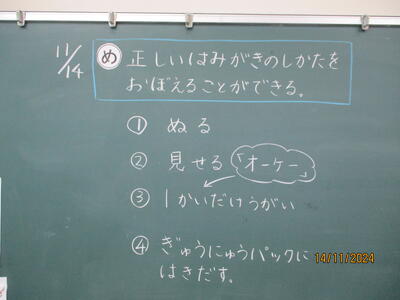 11/14
め 正しいはみがきのしかたを
おぼえることができる。
① ぬる
② 見せる 「オーケー」
③ 1かいだけうがい
④ ぎゅうにゅうパックに
はきだす。
14/11/2024